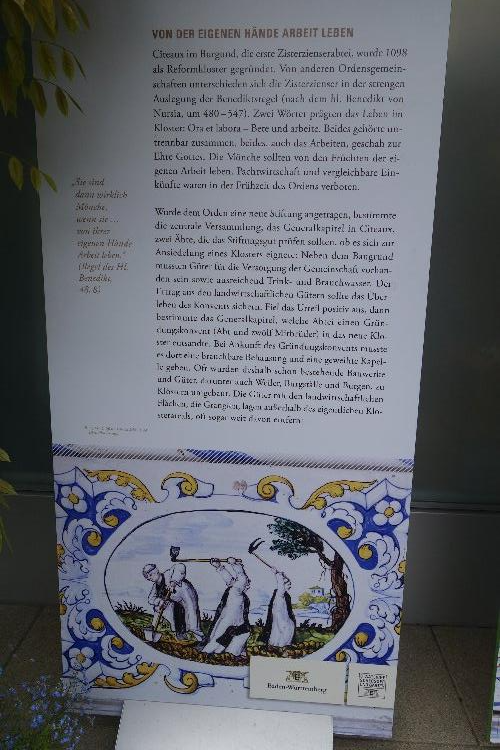 VON DER EIGENEN HÄNDE ARBEIT LEBEN
Citeaux im Burgund, die erste Zisterzienserabtei, wurde 1098
als Reformkloster gegründet. Von anderen Ordensgemein-
schaften unterschieden sich die Zisterzienser in der strengen
Auslegung der Benediktsregel (nach dem hl. Benedikt von
Nursia, um 480–547). Zwei Wörter prägten das Leben im
Kloster: Ora et labora – Bete und arbeite. Beides gehörte un-
trennbar zusammen, beides, auch das Arbeiten, geschah zur
Ehre Gottes. Die Mönche sollten von den Früchten der ei-
genen Arbeit leben. Pachtwirtschaft und vergleichbare Ein-
künfte waren in der Frühzeit des Ordens verboten.
„Sie sind
dann wirklich
Mönche,
wenn sie ...
von ihrer
eigenen Hände
Arbeit leben.“
(Regel des Hl.
Benedikt,
48, 8)
Wurde dem Orden eine neue Stiftung angetragen, bestimmte
die zentrale Versammlung, das Generalkapitel in Citeaux,
zwei Äbte, die das Stiftungsgut prüfen sollten, ob es sich zur
Ansiedelung eines Klosters eignete: Neben dem Baugrund
mussten Güter für die Versorgung der Gemeinschaft vorhan-
den sein sowie ausreichend Trink- und Brauchwasser. Der
Ertrag aus den landwirtschaftlichen Gütern sollte das Über-
leben des Konvents sichern. Fiel das Urteil positiv aus, dann
bestimmte das Generalkapitel, welche Abtei einen Grün-
dungskonvent (Abt und zwölf Mitbrüder) in das neue Klo-
ster entsandte. Bei Ankunft des Gründungskonvents musste
es dort eine brauchbare Behausung und eine geweihte Kapel-
le geben. Oft wurden deshalb schon bestehende Bauwerke
und Güter, darunter auch Weiler, Burgställe und Burgen, zu
Klöstern umgebaut. Die Güter mit den landwirtschaftlichen
Flächen, die Grangien, lagen außerhalb des eigentlichen Klo-
sterareals, oft sogar weit davon entfernt.
Baden-Württemberg